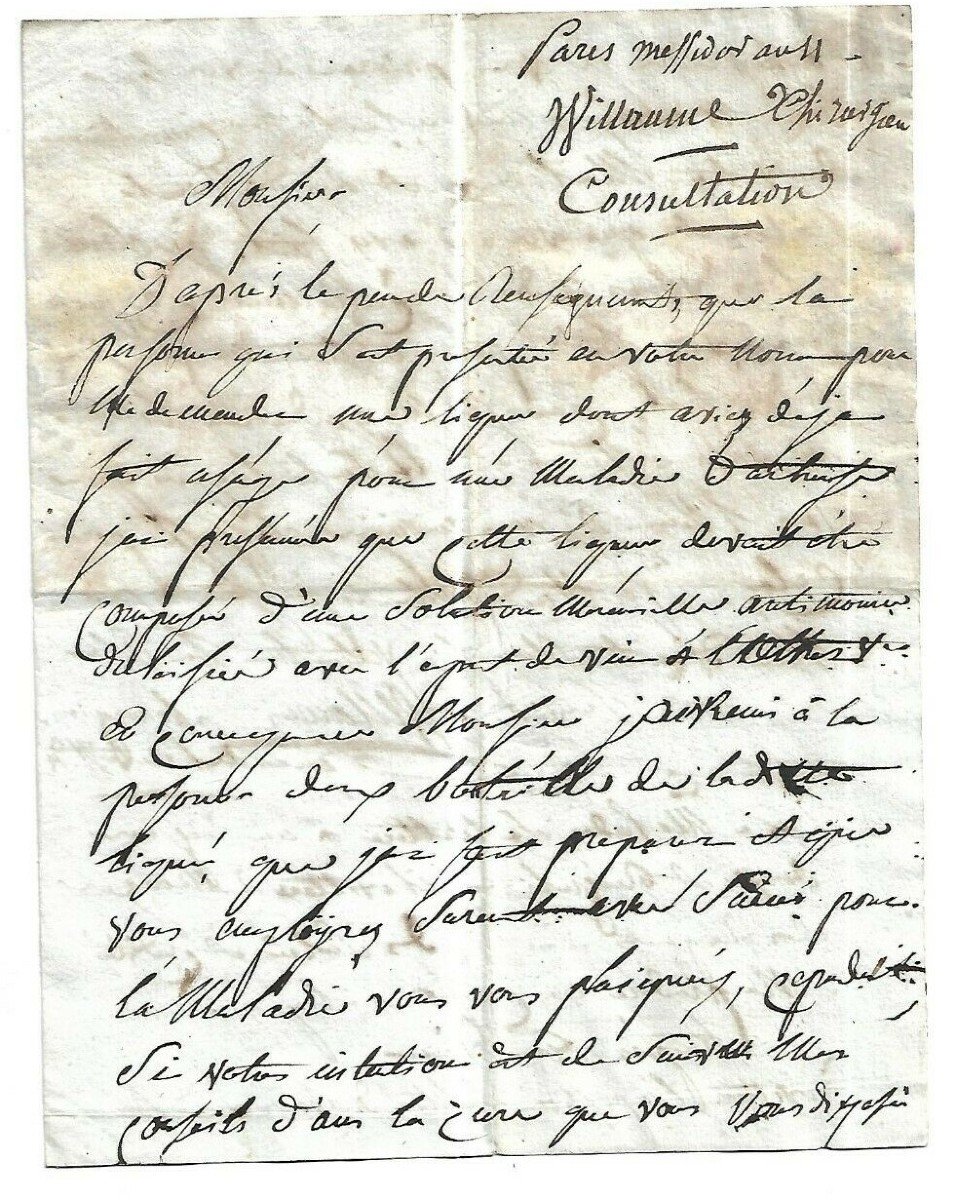 Paris messidor an 11
Willaume Chirurgien
Consultation
Monsieur
D'après le peu de Renseignements, que la
personne qui s'est presentée en votre nom pour
Me demander une liqueur dont aviez déja
fait usage pour une Maladie
jai présumée que cette liqueur devait être
composée d'une Solution Mercurielle antimonie
dulcifiée avec l'esprit de vin &
En consequence Monsieur jai Remis à la
personne deux bouteille de ladite
liqué, que jai fait préparer et que
vous employrez avec Succès pour
la Maladie vous vous plaignés, cependant
Si votre intention est de Suivre Mes
conseils d'ans la Cure que vous Vous disposé